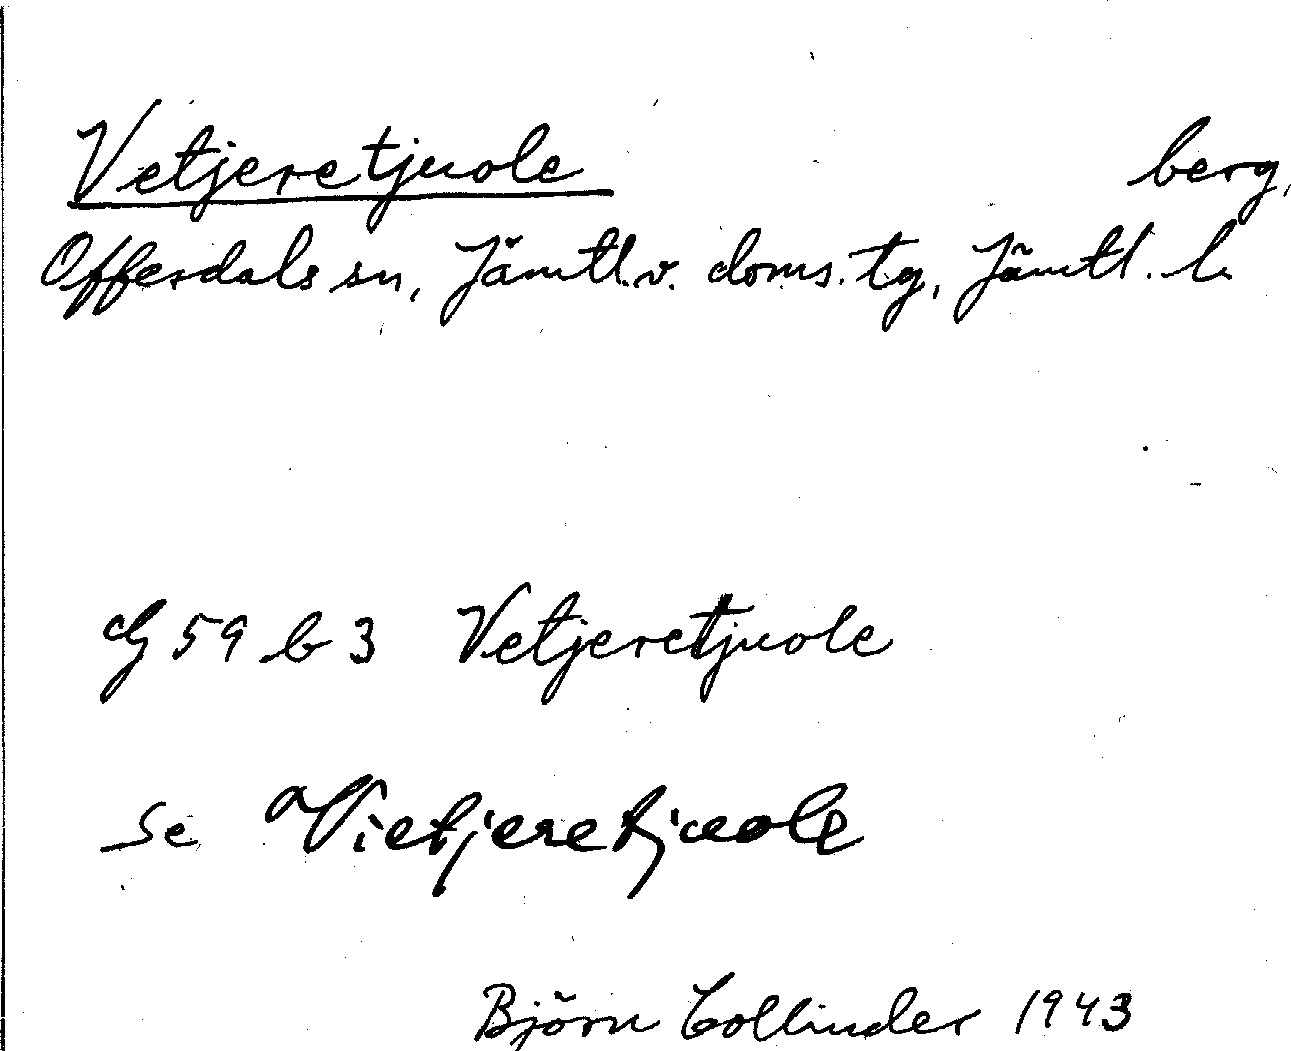 Vetjeretjuole berg,
Offerdals sn, Jämtl. v. doms. tg, Jämtl. l.
G 59 b 3 Vetjeretjuole
Se Vietjeretjuole
Björn Collinder 1943